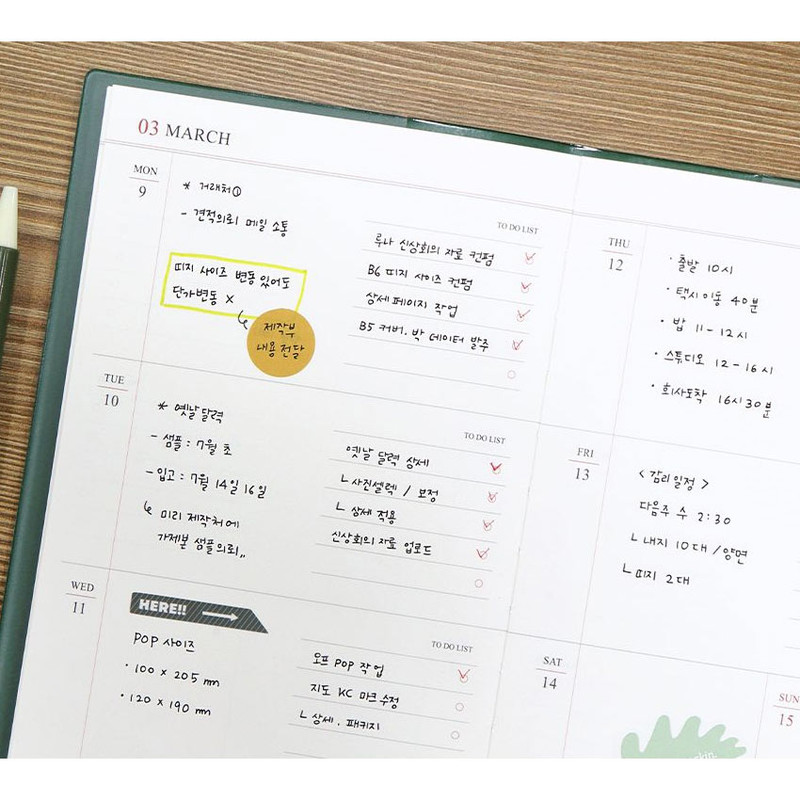 03 MARCH
MON
9
* 거래처①
- 견적의뢰 메일 소통
띠지 사이즈 변동 있어도
단가변동 X
↳ 제작부
내용전달
TO DO LIST
루나 신상회의 자료 컨펌
B6 띠지 사이즈 컨펌
상세페이지 작업
B5 커버, 박 데이터 발주
TUE
10
* 옛날달력
- 샘플 : 7월 초
- 입고 : 7월 14일 16일
↳ 미리 제작처에
가제본 샘플의뢰,,
TO DO LIST
옛날 달력 상세
ㄴ 사진셀렉 / 보정
ㄴ 상세 적용
신상회의 자료 업로드
WED
11
HERE!!
POP 사이즈
· 100 x 205 mm
· 120 x 190 mm
TO DO LIST
오프 POP 작업
지도 KC 마크 수정
ㄴ 상세. 패키지
THU
12
· 출발 10시
· 택시이동 40분
· 밥 11 - 12시
· 스튜디오 12 - 16시
· 회사도착 16시 30분
FRI
13
< 감리일정 >
다음주 수 2:30
ㄴ 내지 10대 / 양면
ㄴ 띠지 2대
SAT
14
SUN
15